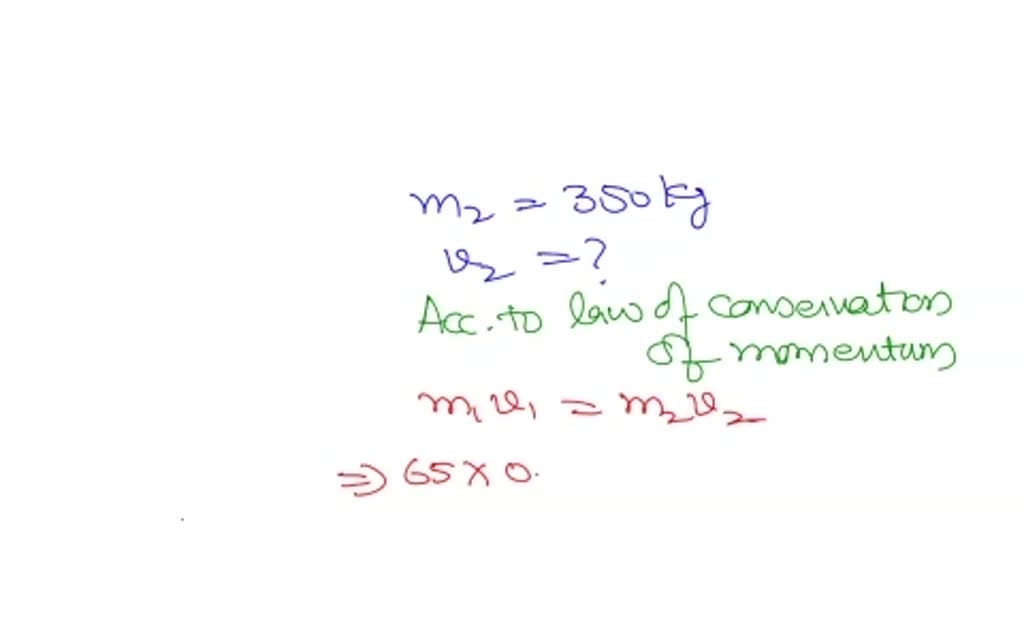 m₂ = 350 kg
v₂ = ?
Acc. to law of conservation
of momentum
m₁v₁ = m₂v₂
⇒ 65 × 0.